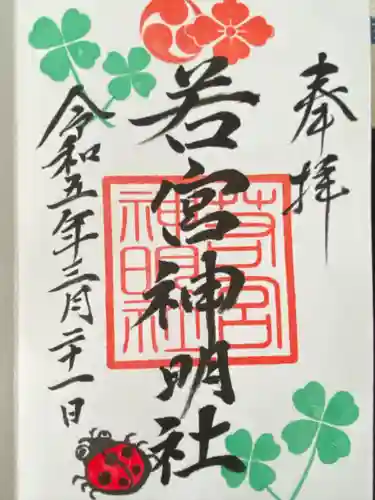 奉拝
若宮神明社
若宮
神明社
令和五年三月二十一日